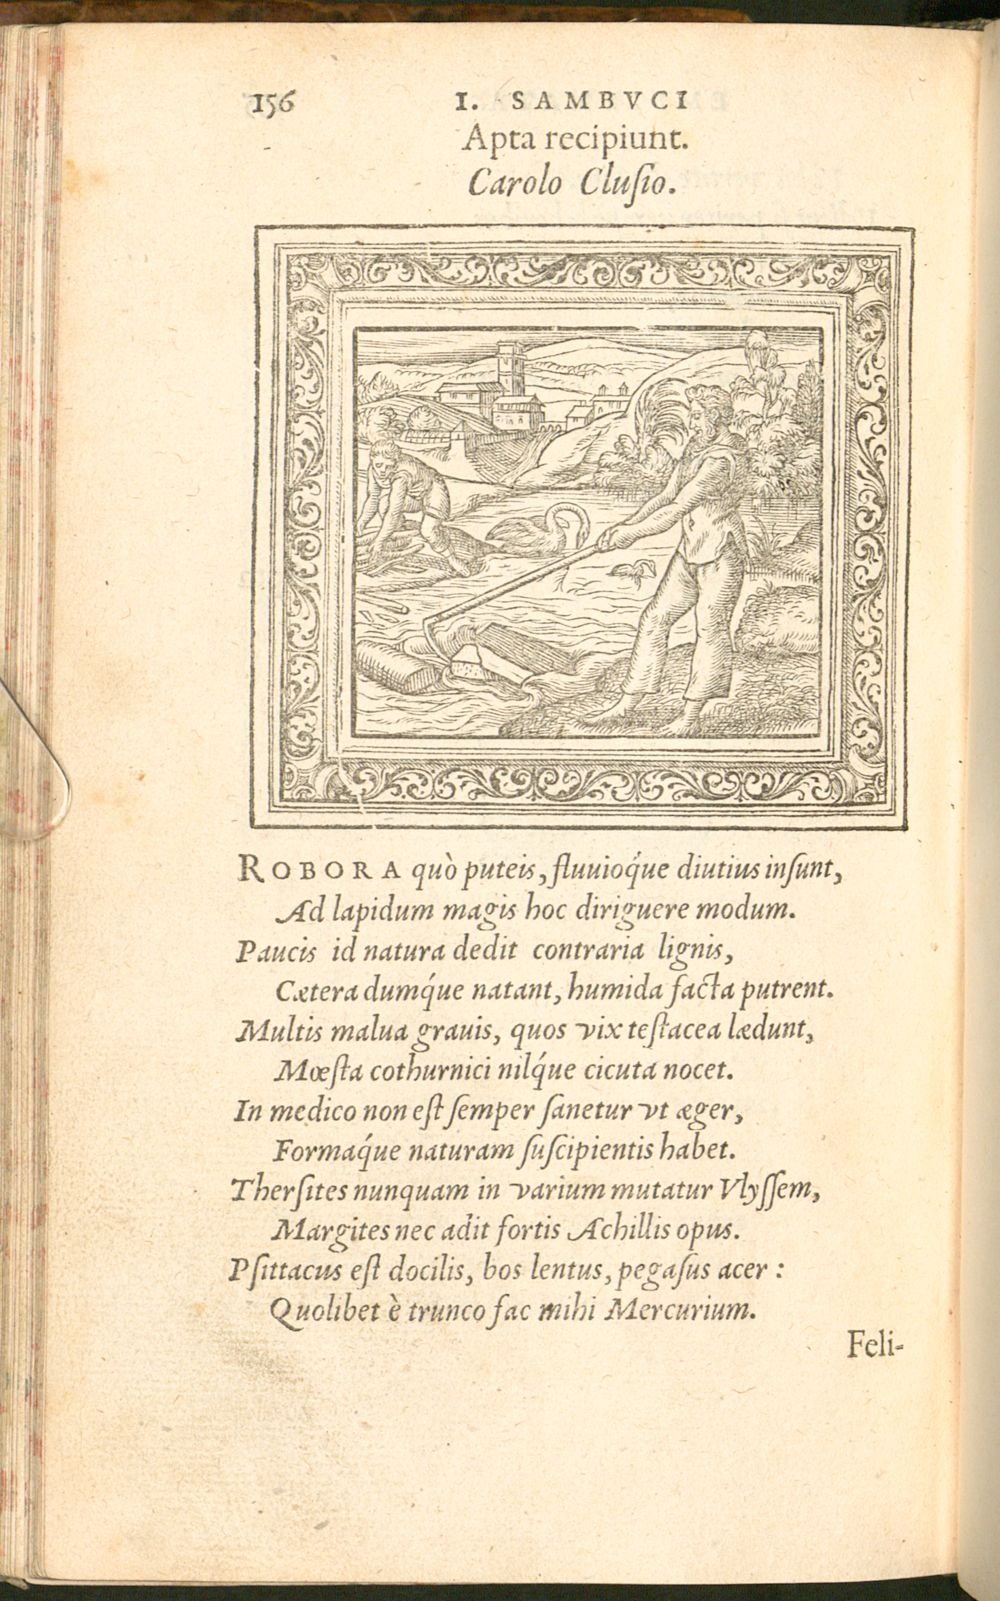 156 I. SAMBVCI
Apta recipiunt.
Carolo Clusio.
ROBORA quò puteis, fluuioq́ue diutius insunt,
Ad lapidum magis hoc diriguere modum.
Paucis id natura dedit contraria lignis,
Cætera dumq́ue natant, humida facta putrent.
Multis malua grauis, quos vix testacea lædunt,
Mœsta cothurnici nilq́ue cicuta nocet.
In medico non est semper sanetur vt æger,
Formaq́ue naturam suscipientis habet.
Thersites nunquam in varium mutatur Vlyssem,
Margites nec adit fortis Achillis opus.
Psittacus est docilis, bos lentus, pegasus acer:
Quolibet è trunco fac mihi Mercurium.
Feli-